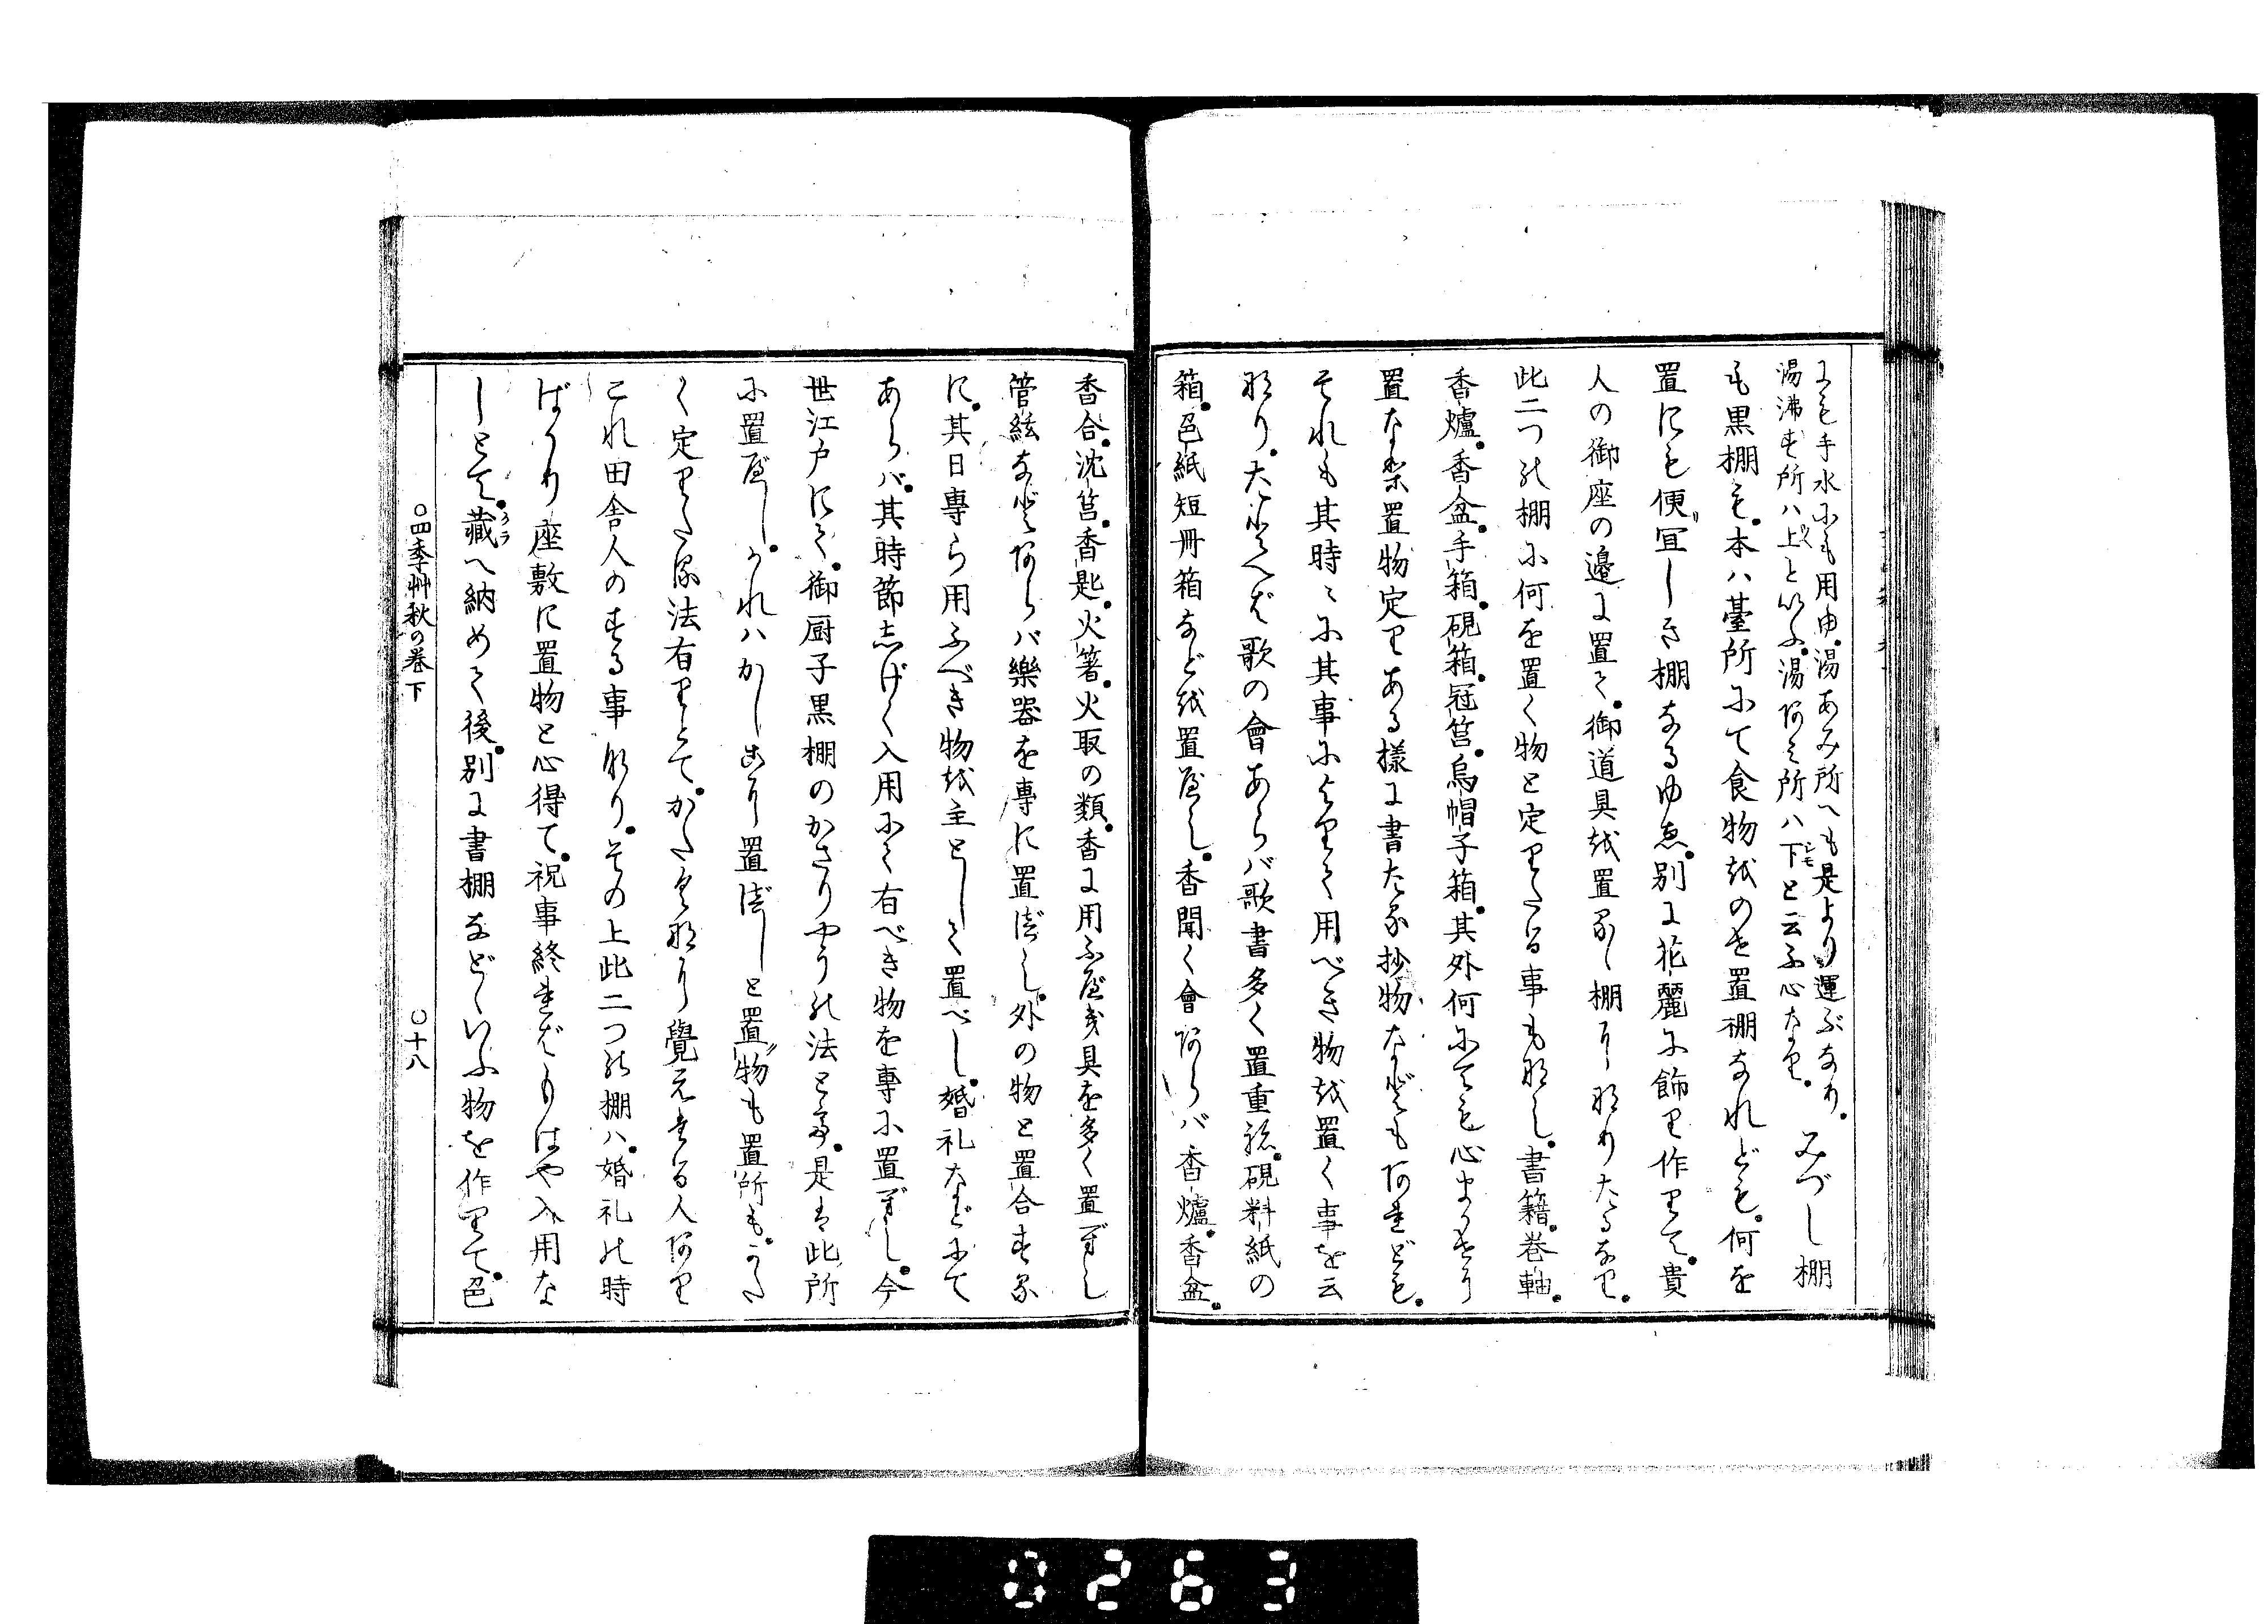 にも手水にも用由。湯あみ所へも是より運ぶなり。
湯沸す所ハ上といふ。湯あミ所ハ下と云ふ心なり。
みづし棚
も黒棚も。本ハ臺所にて食物をのせ置棚なれども。何を
置にも便冝しき棚なるゆゑ。別に花麗に飾り作りて。貴
人の御座の邉に置て。御道具を置るゝ棚となりたるなり。
此二つの棚に何を置く物と定りたる事もなし。書籍。巻軸。
香爐。香盆。手箱。硯箱。冠筥。烏帽子箱。其外何にても心まかせに
置なり。置物定りある様に書たる抄物などもあれども。
それも其時〻に其事によりて用べき物を置く事を云
なり。たとへば歌の會あらバ歌書多く置重ね。硯料紙の
箱。色紙短冊箱などを置べし。香聞く會あらバ香爐。香盆。
香合。沈筥。香匙。火箸。火取の類。香に用ふべき具を多く置べし
管絃などあらバ樂器を専に置べし。外の物と置合する
に。其日専ら用ふべき物を主として置べし。婚礼などにて
あらバ。其時節しげく入用にて有べき物を専に置べし。今
世江戸にて。御厨子黒棚のかさりやうの法とて。是は此所
に置べし。かれハかしこに置べしと置物も置所も。かた
く定りたる法有りとて。かたくなに覺えたる人あり
これ田舎人のする事なり。その上此二つの棚ハ。婚礼の時
ばかり座敷に置物と心得て。祝事終ればもはや入用な
しとて。藏へ納めて後。別に書棚などゝいふ物を作りて。色
○四季艸秋の巻下 ○十八
0263